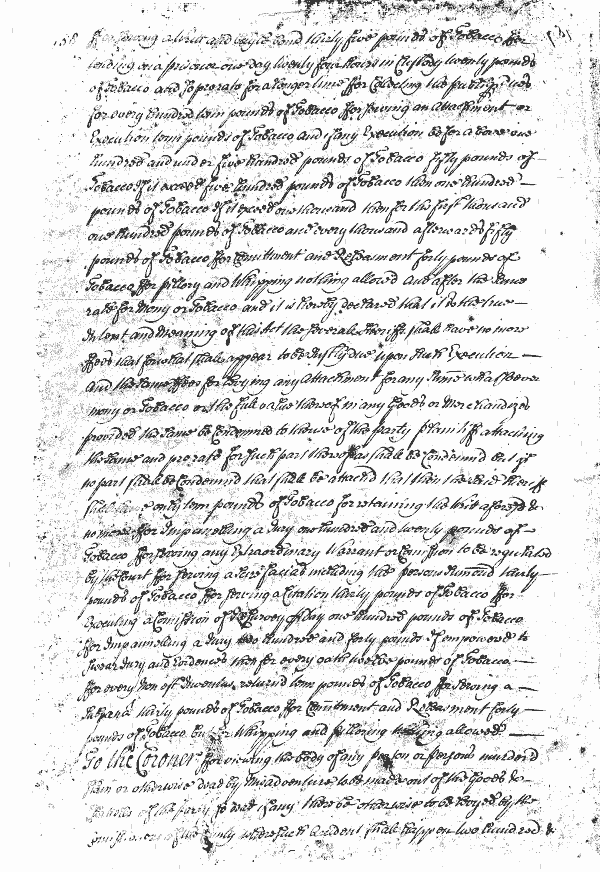 158
for serving a Writt and Bayle bond thirty five pounds of Tobacco ffor
tending on a prisoner one day twenty four houres in Custody twenty pounds
of Tobacco and so prorate for a longer time ffor Collecting the publiq
for every hundred tenn pounds of Tobacco ffor serving an Attachment or
Execution tenn pounds of Tobacco and if any Execution be for above one
hundred and under five hundred pounds of Tobacco fifty pounds of
Tobacco if it exceed five hundred pounds of Tobacco then one hundred
pounds of Tobacco if it exceed one thousand then for the first thousand
one hundred pounds of Tobacco and every thousand afterwards fifty
pounds of Tobacco ffor Comittment and Releasment forty pounds of
Tobacco ffor pillory and Whipping nothing allowed And after the same
rate for Mony or Tobacco and it is hereby declared that it is the true
Intent and meaning of this Act the severall Sheriffs shall have no more
ffees that for what shall appear to be Justly due upon such Execution
And the same ffees for Levying any Attachment for any Summe whatsoever
mony or Tobacco or the full value thereof in any Goods or Merchandizes
provided the same be Condemned to the use of the party plaintiff attaching
the same and prorate for such part thereof as shall be Condemned but if
no part shall be Condemned that shall be attach'd that then the said Sheriff
shall have only tenn pounds of Tobacco for retaining the Writ aforesd &
no more ffor Impannelling a Jury one hundred and twenty pounds of
Tobacco ffor serving any Extraordinary Warrant or Comission to be regulated
by the Court ffor serving a Scire facias including the persons Sumond thirty
pounds of Tobacco ffor serving a Citation thirty pounds of Tobacco ffor
Executing a Comission of Resurvey &c per day one hundred pounds of Tobacco
ffor Impannelling a Jury two hundred and forty pounds if empowered to
swear Jury and Evidences then for every oath twelve pounds of Tobacco
ffor every Non est Inventus returnd tenn pounds of Tobacco ffor serving a
Subpena thirty pounds of Tobacco ffor Comittment and Releasment forty
pounds of Tobacco but for Whipping and pilloring nothing allowed
To the Coroner ffor viewing the body of any person or persons murderd
slain or otherwise dead by Misadventure to be made out of the Goods &
Chattells of the party so dead if any there be otherwise to be levyed by the
of the County where such Accident shall happen two hundred &